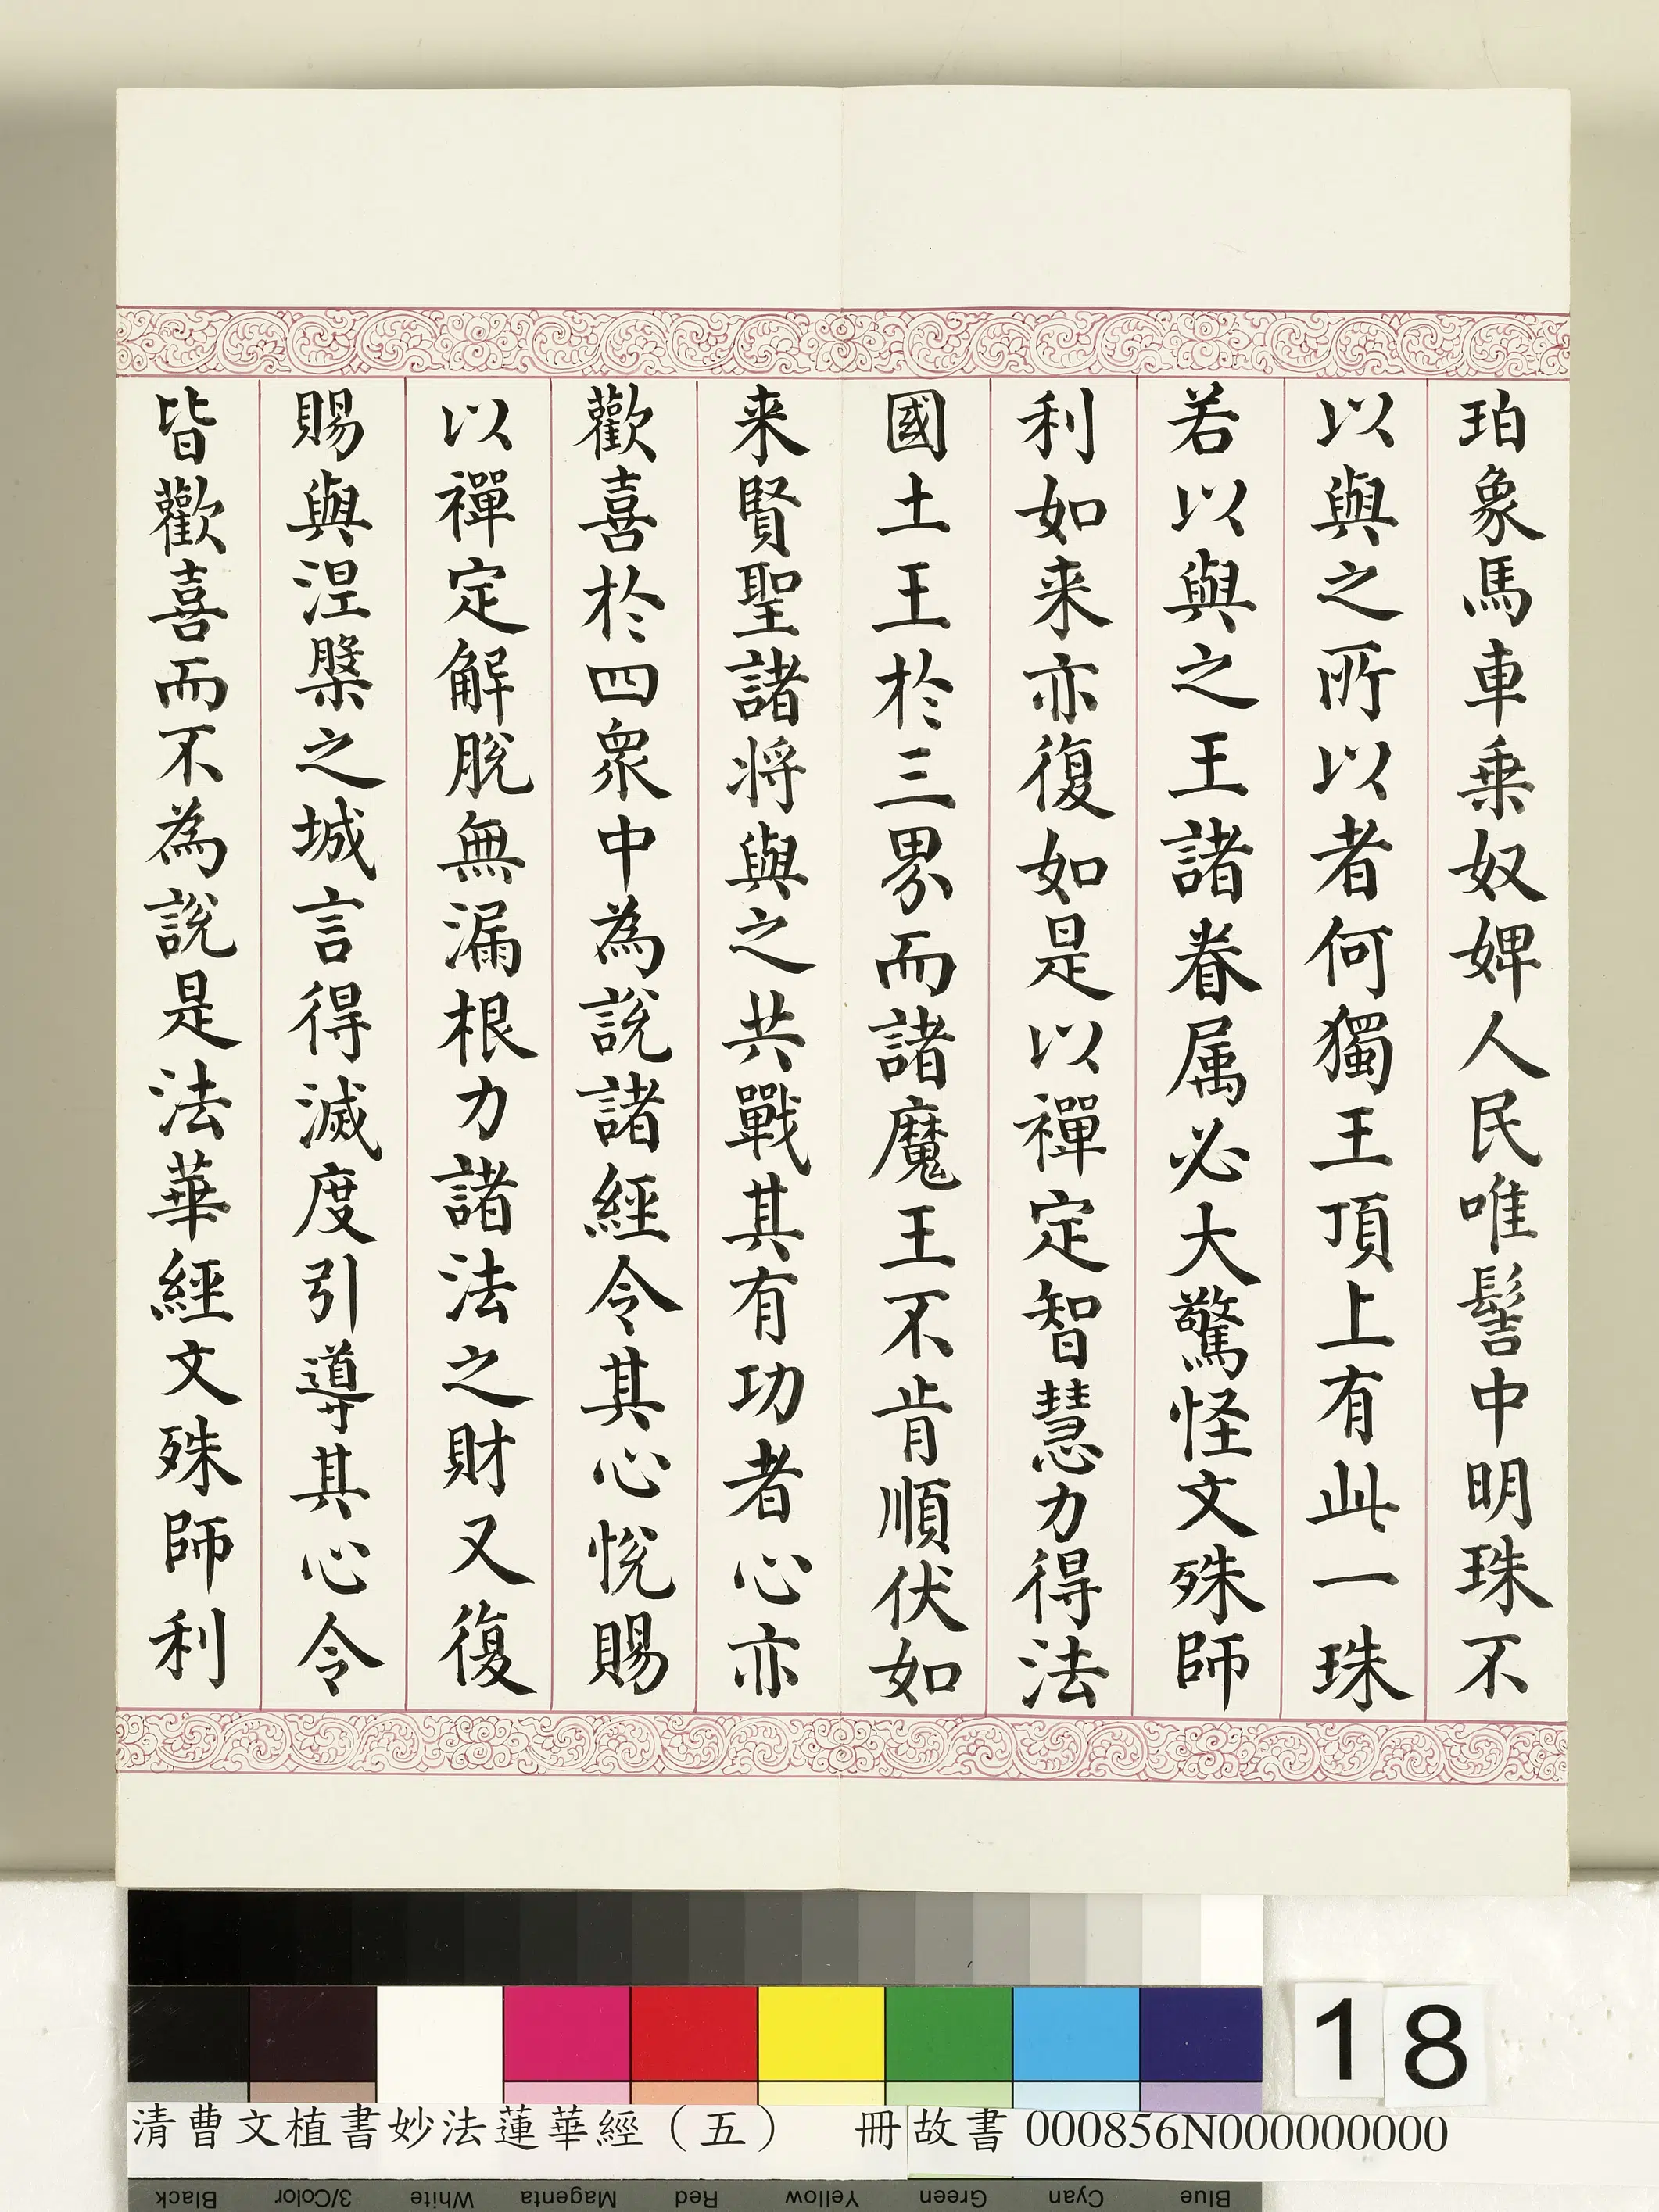 珀象馬車乗奴婢人民唯髻中明珠不
以與之所以者何獨王頂上有此一珠
若以與之王諸眷属必大驚怪文殊師
利如来亦復如是以禪定智慧力得法
國土王於三界而諸魔王不肯順伏如
来賢聖諸将與之共戰其有功者心亦
歡喜於四衆中為說諸經令其心悅賜
以禪定解脫無漏根力諸法之財又復
賜與涅槃之城言得滅度引導其心令
皆歡喜而不為說是法華經文殊師利
18
清曹文植書妙法蓮華經（五） 冊 故書 000856N000000000
Black 3/Color White Magenta Red Yellow Green Cyan Blue